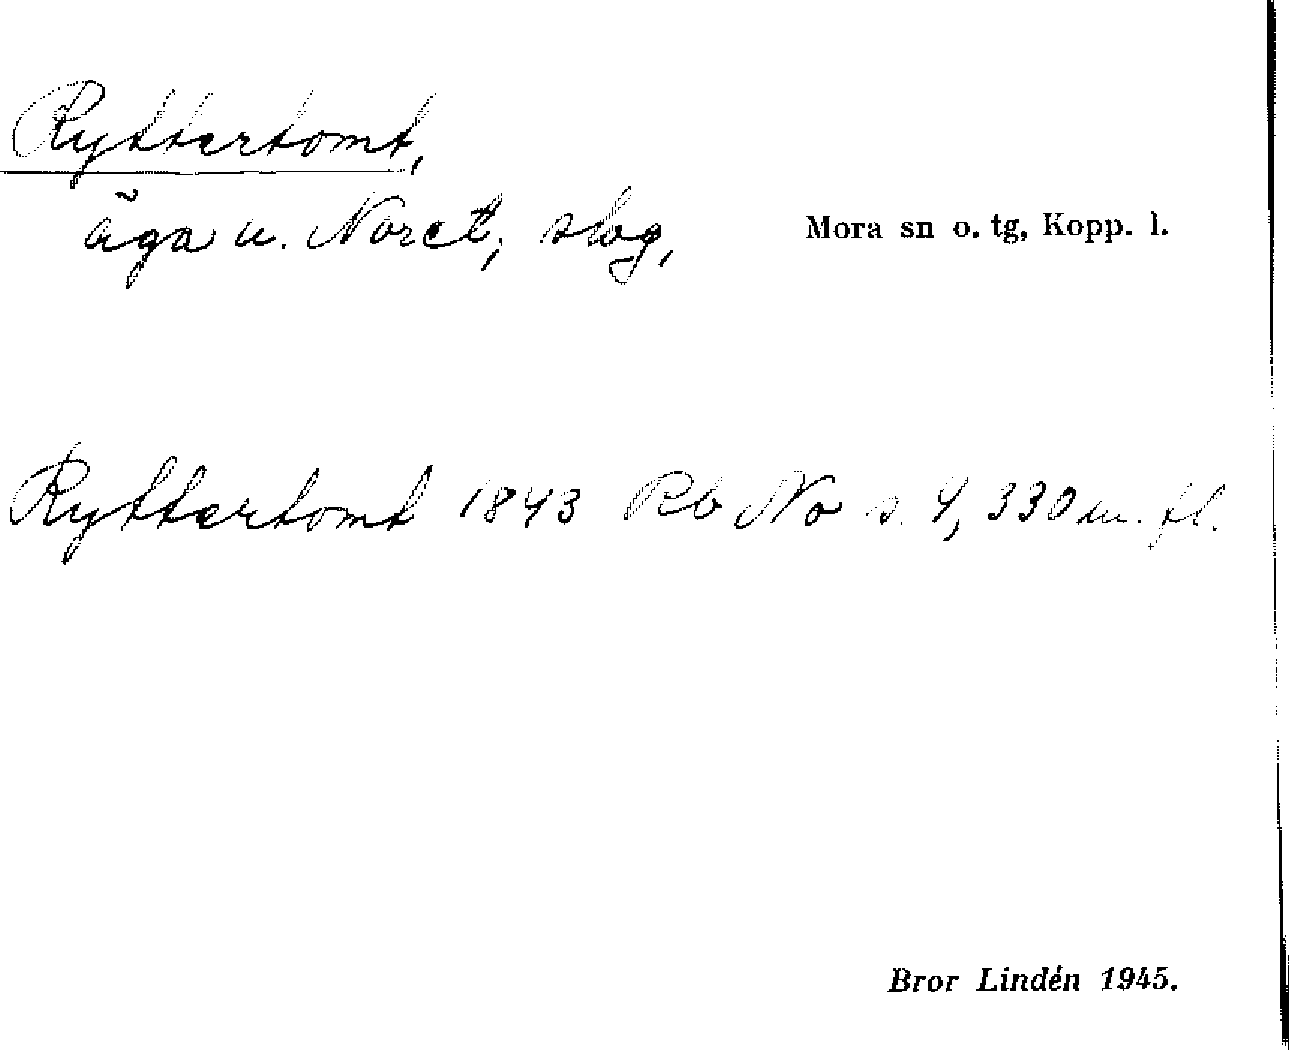 Ryttertomt,
äga u. Noret, slog,
Mora sn o. tg, Kopp. l.
Ryttertomt 1843 Rb No s. 4, 330 m. fl.
Bror Lindén 1945.